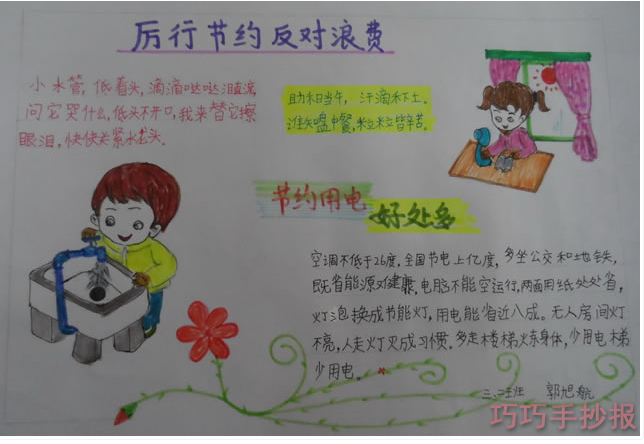 厉行节约反对浪费
小水管,低着头,滴滴哒哒泪直流
问它哭什么,低头不开口,我来替它擦
眼泪,快快关紧水龙头。
助禾日当午,汗滴禾下土。
谁知盘中餐,粒粒皆辛苦。
节约用电
好处多
空调不低于26度.全国节电上亿度,多坐公交和地铁,
既省能源对健康,电脑不能空运行,两面用纸处处省,
灯泡换成节能灯,用电能省近八成。无人房间灯
不亮,人走灯灭成习惯.多走楼梯炼身体,少用电梯
少用电。
三.二班 郭旭航
巧巧手抄报